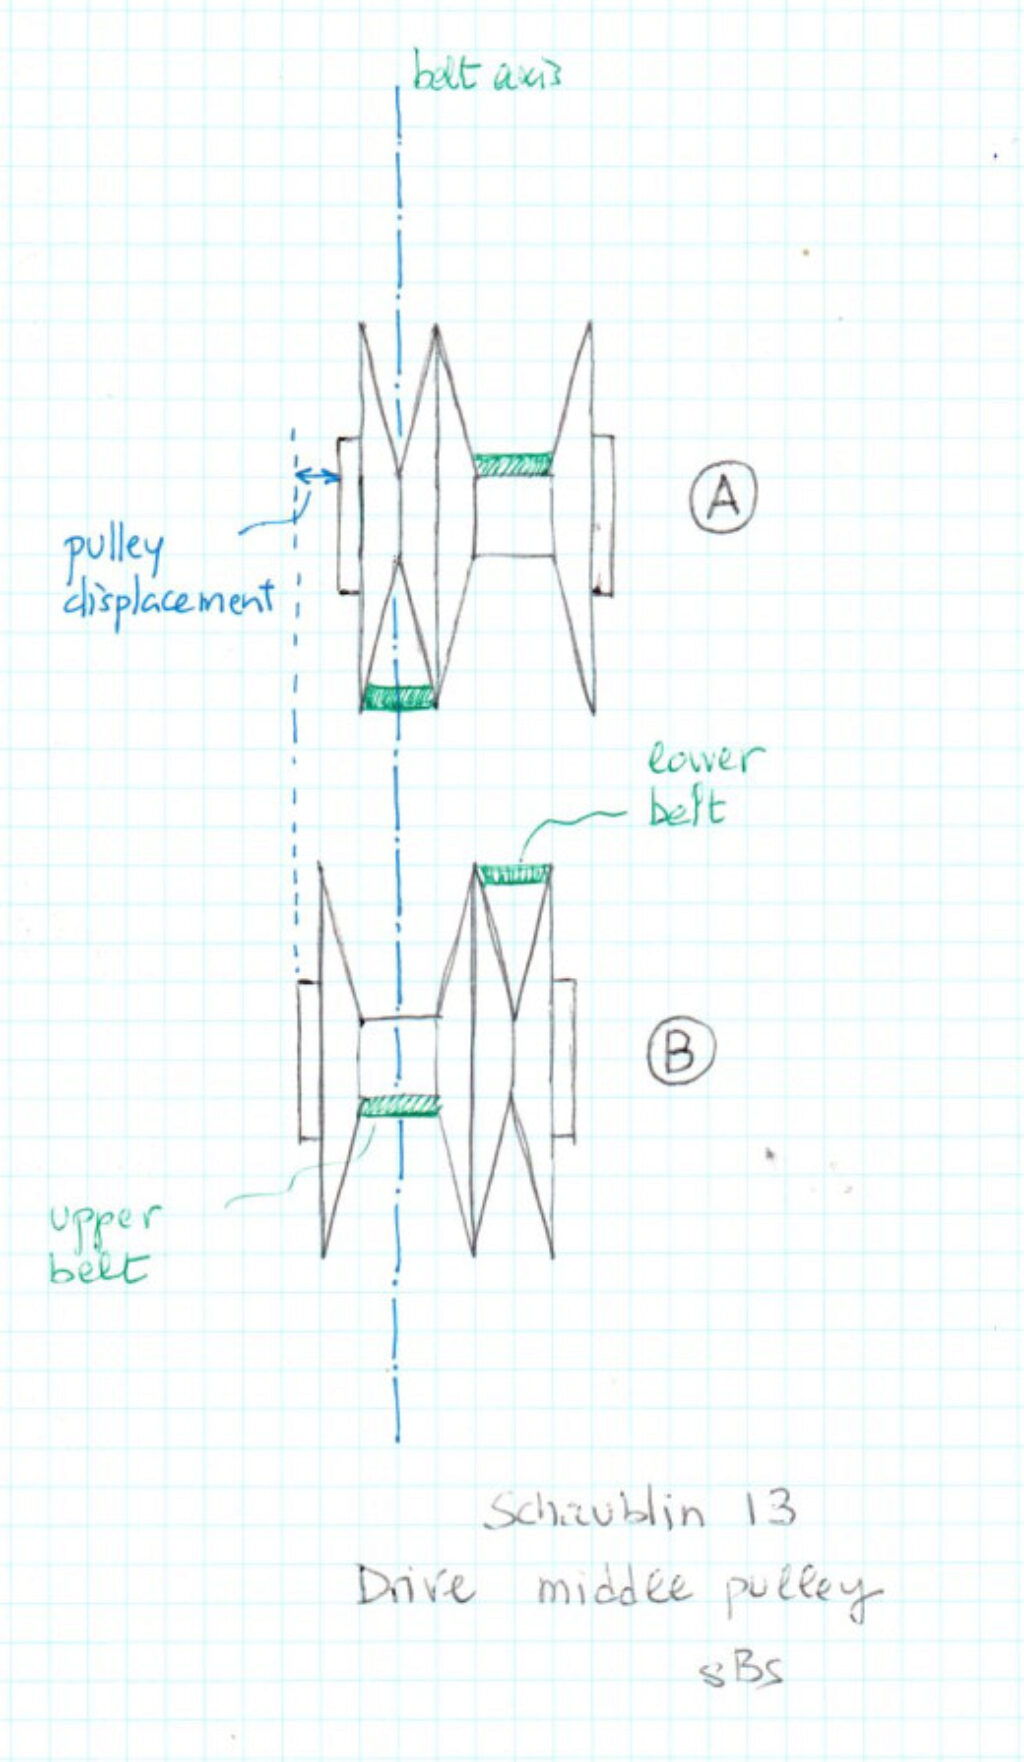 belt axis
A
pulley
displacement
lower
belt
B
upper
belt
Schaublin 13
Drive middle pulley
sBs